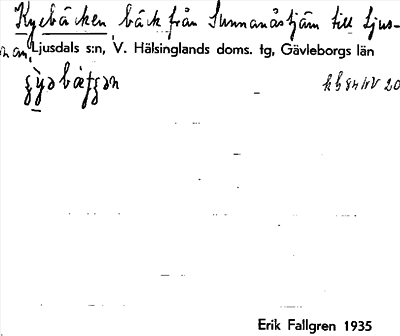 Kycbäcken, bäck från Sunnanåstjärn till Ljus-
nan, Ljusdals s:n, V. Hälsinglands doms. tg, Gävleborgs län
Erik Fallgren 1935